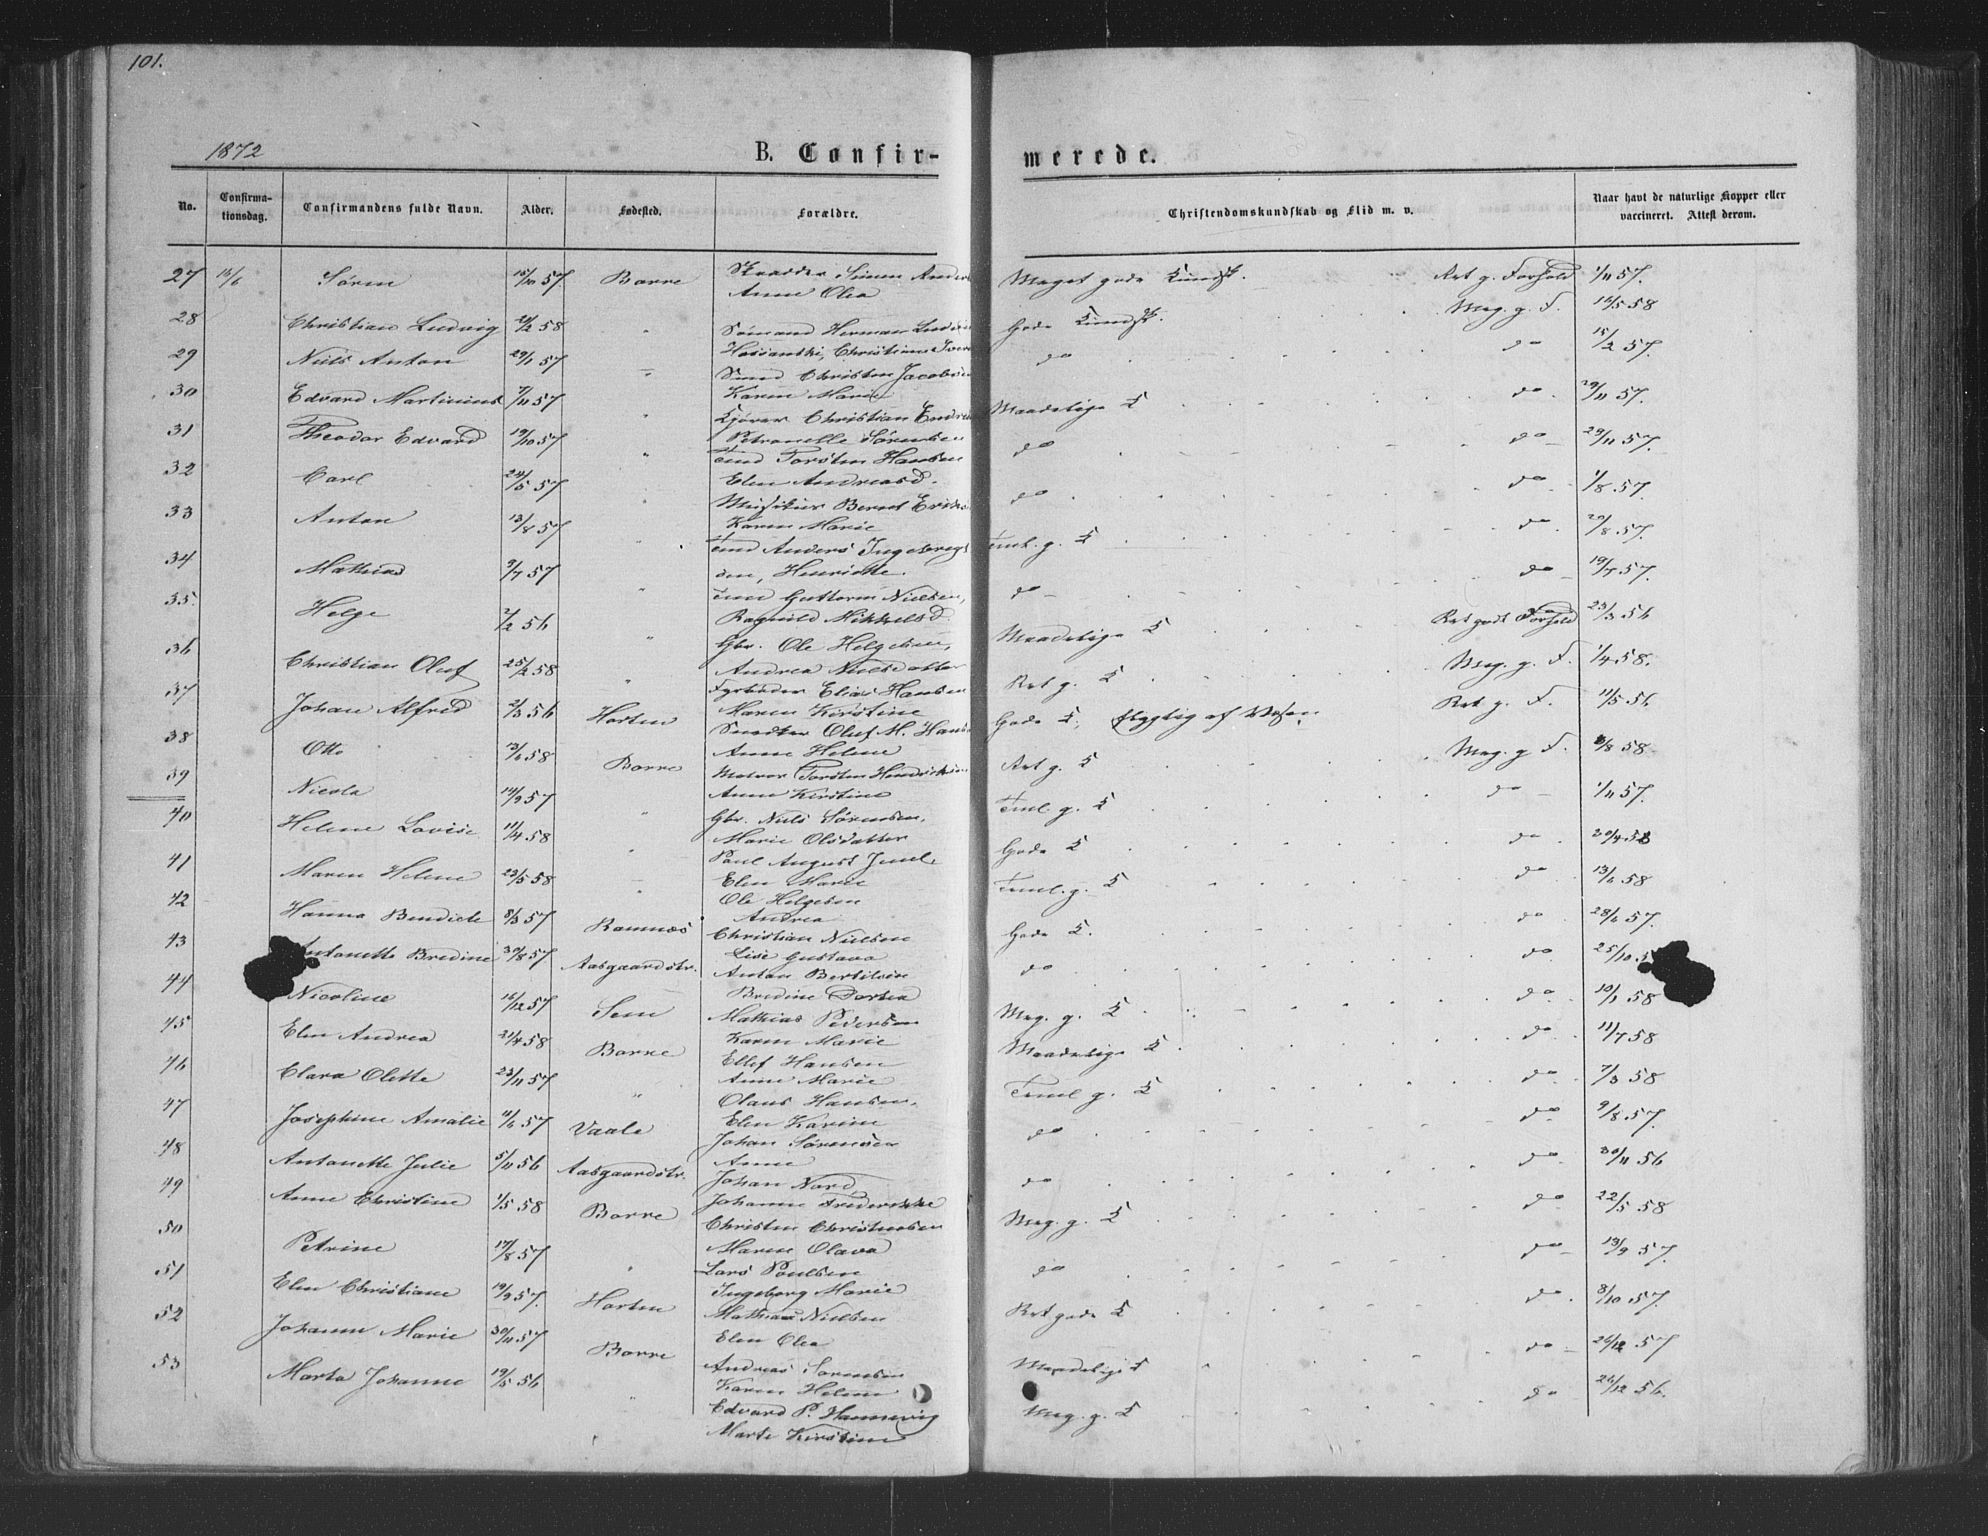 101.
1872
B. Confir-
merede.
No.
Confirma-
tionsdag.
Confirmandens fulde Navn.
Alder.
Fødested.
Forældre.
Christendomskundskab og Flid m. v.
Naar havt de naturlige Kopper eller
vaccineret. Attest derom.
27 16/6 Søren 15/10 57 Borre Skrædder Simen Anders Meget gode Kundsk. Ret g. Forhold 1/11 57.
Anne Olea
28 Christian Ludvig 21/2 58 " Sømand Herman Gode Kundsk. Meg. g. F. 16/5 58
Christiane
29 Niels Anton 29/1 57 " Christen Jacobsen do do 15/2 57.
Karen Marie
30 Edvard Martinius 7/11 57 " Christian Maadelige K do 29/11 57.
Petronelle Sørensen
31 Theodor Edvard 19/10 57 " Torsten Hansen do do 29/11 57.
Elen Andreasd.
32 Carl 24/5 57 Musiker Bernt do do 1/8 57.
Karen Marie
33 Anton 13/8 57 " Anders Ingebregt g. K do 20/8 57.
sen, Henriette.
34 Mathias 9/7 57 " Guttorm Nielsen, do do 19/7 57.
Ragnild Mikkelsd.
35. Helge 2/2 56 " Gbr. Ole Helgesen, Maadelige K Ret godt Forhold 23/3 56
Andrea Nielsdatter
36 Christian Oluf 25/2 58 " Fyrbøder Elias Hansen Ret g. K Meg. g. F. 1/4 58.
Maren Kirstine
37 Johan Alfred 2/3 56 Horten Snedker Oluf M. Hans Gode K, flygtig af Væsen Ret g. F. 11/5 56
Anne Helene
38 Otto 13/6 58 Borre Torsten Hendriksen Ret g. K Meg. g F. 8/8 58
Anne Kirstine
39 Nicola 14/9 57 " Gbr. Niels Sørensen, g. K do 1/11 57.
Marie Olsdatter
40 Helene Lovise 11/4 58 " Paul August Juul. Gode K do 20/4 58
Elen Marie
41 Maren Helene 23/5 58 " Ole Helgesen g. K do 13/6 58
Andrea
42 Hanna Bendicte 8/3 57 Ramnæs Christian Nielsen Gode K. do 28/6 57.
Lise Gustava
43 Antonette Bredine 30/8 57 Aasgaardstr. Anton Bertilsen do do 25/10
Bredine Dortea
44 Nicoline 16/12 57 Sem Mathias Pedersen Meg. g. K do 10/1 58
Karen Marie
45 Elen Andrea 21/4 58 Borre Ellef Hansen Maadelige K do 11/7 58
Anne Marie
46 Clara Olette 23/11 57 " Olaus Hansen. g. K do 7/3 58
Elen Karine
47 Josephine Amalie 11/6 57 Vaale Johan Sørensen do do 9/8 57.
Anne
48 Antonette Julie 5/11 56 Aasgaardstr. Johan Nord do do 30/11 56
Johanne Frederikke
49 Anne Christine 1/5 58 Borre Christen Christensen Meg. g. K do 22/5 58
Maren Olava
50 Petrine 17/8 57 " Lars Poulsen do do 13/9 57.
Ingeborg Marie
51 Elen Christiane 19/9 57. Horten Mathias Nielsen Ret gode K do 8/10 57.
Elen Olea
52 Johanne Marie 30/11 57 Borre Andreas Sørensen Maadelige K do 26/12 57
Karen Helene
53 Marta Johanne 19/5 56 " Edvard P. Hannevig Meg. g. K do 26/12 56.
Marte Kirstine